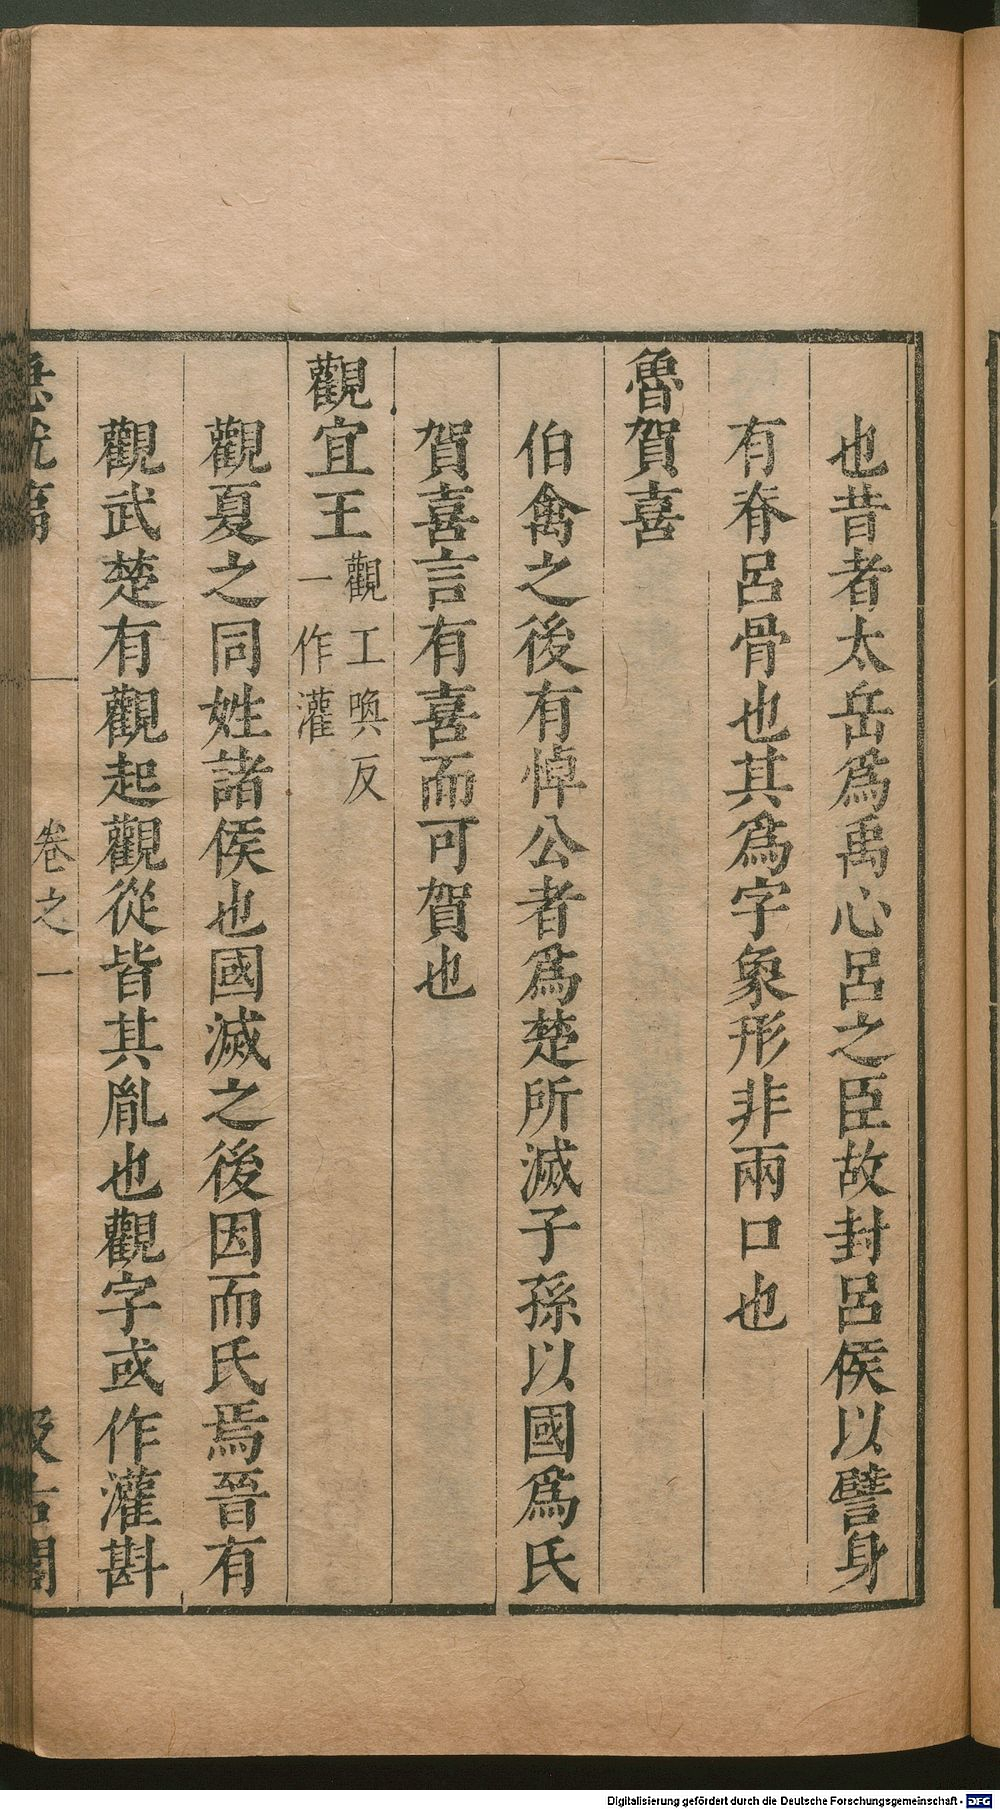 也昔者太岳爲禹心呂之臣故封呂侯以譬身
有脊呂骨也其爲字象形非兩口也
魯賀喜
伯禽之後有悼公者爲楚所滅子孫以國爲氏
賀喜言有喜而可賀也
觀宜王觀工喚反
一作灌
觀夏之同姓諸侯也國滅之後因而氏焉晉有
觀武楚有觀起觀從皆其胤也觀字或作灌斟
急就篇
卷之一
汲古閣
Digitalisierung gefördert durch die Deutsche Forschungsgemeinschaft - DFG